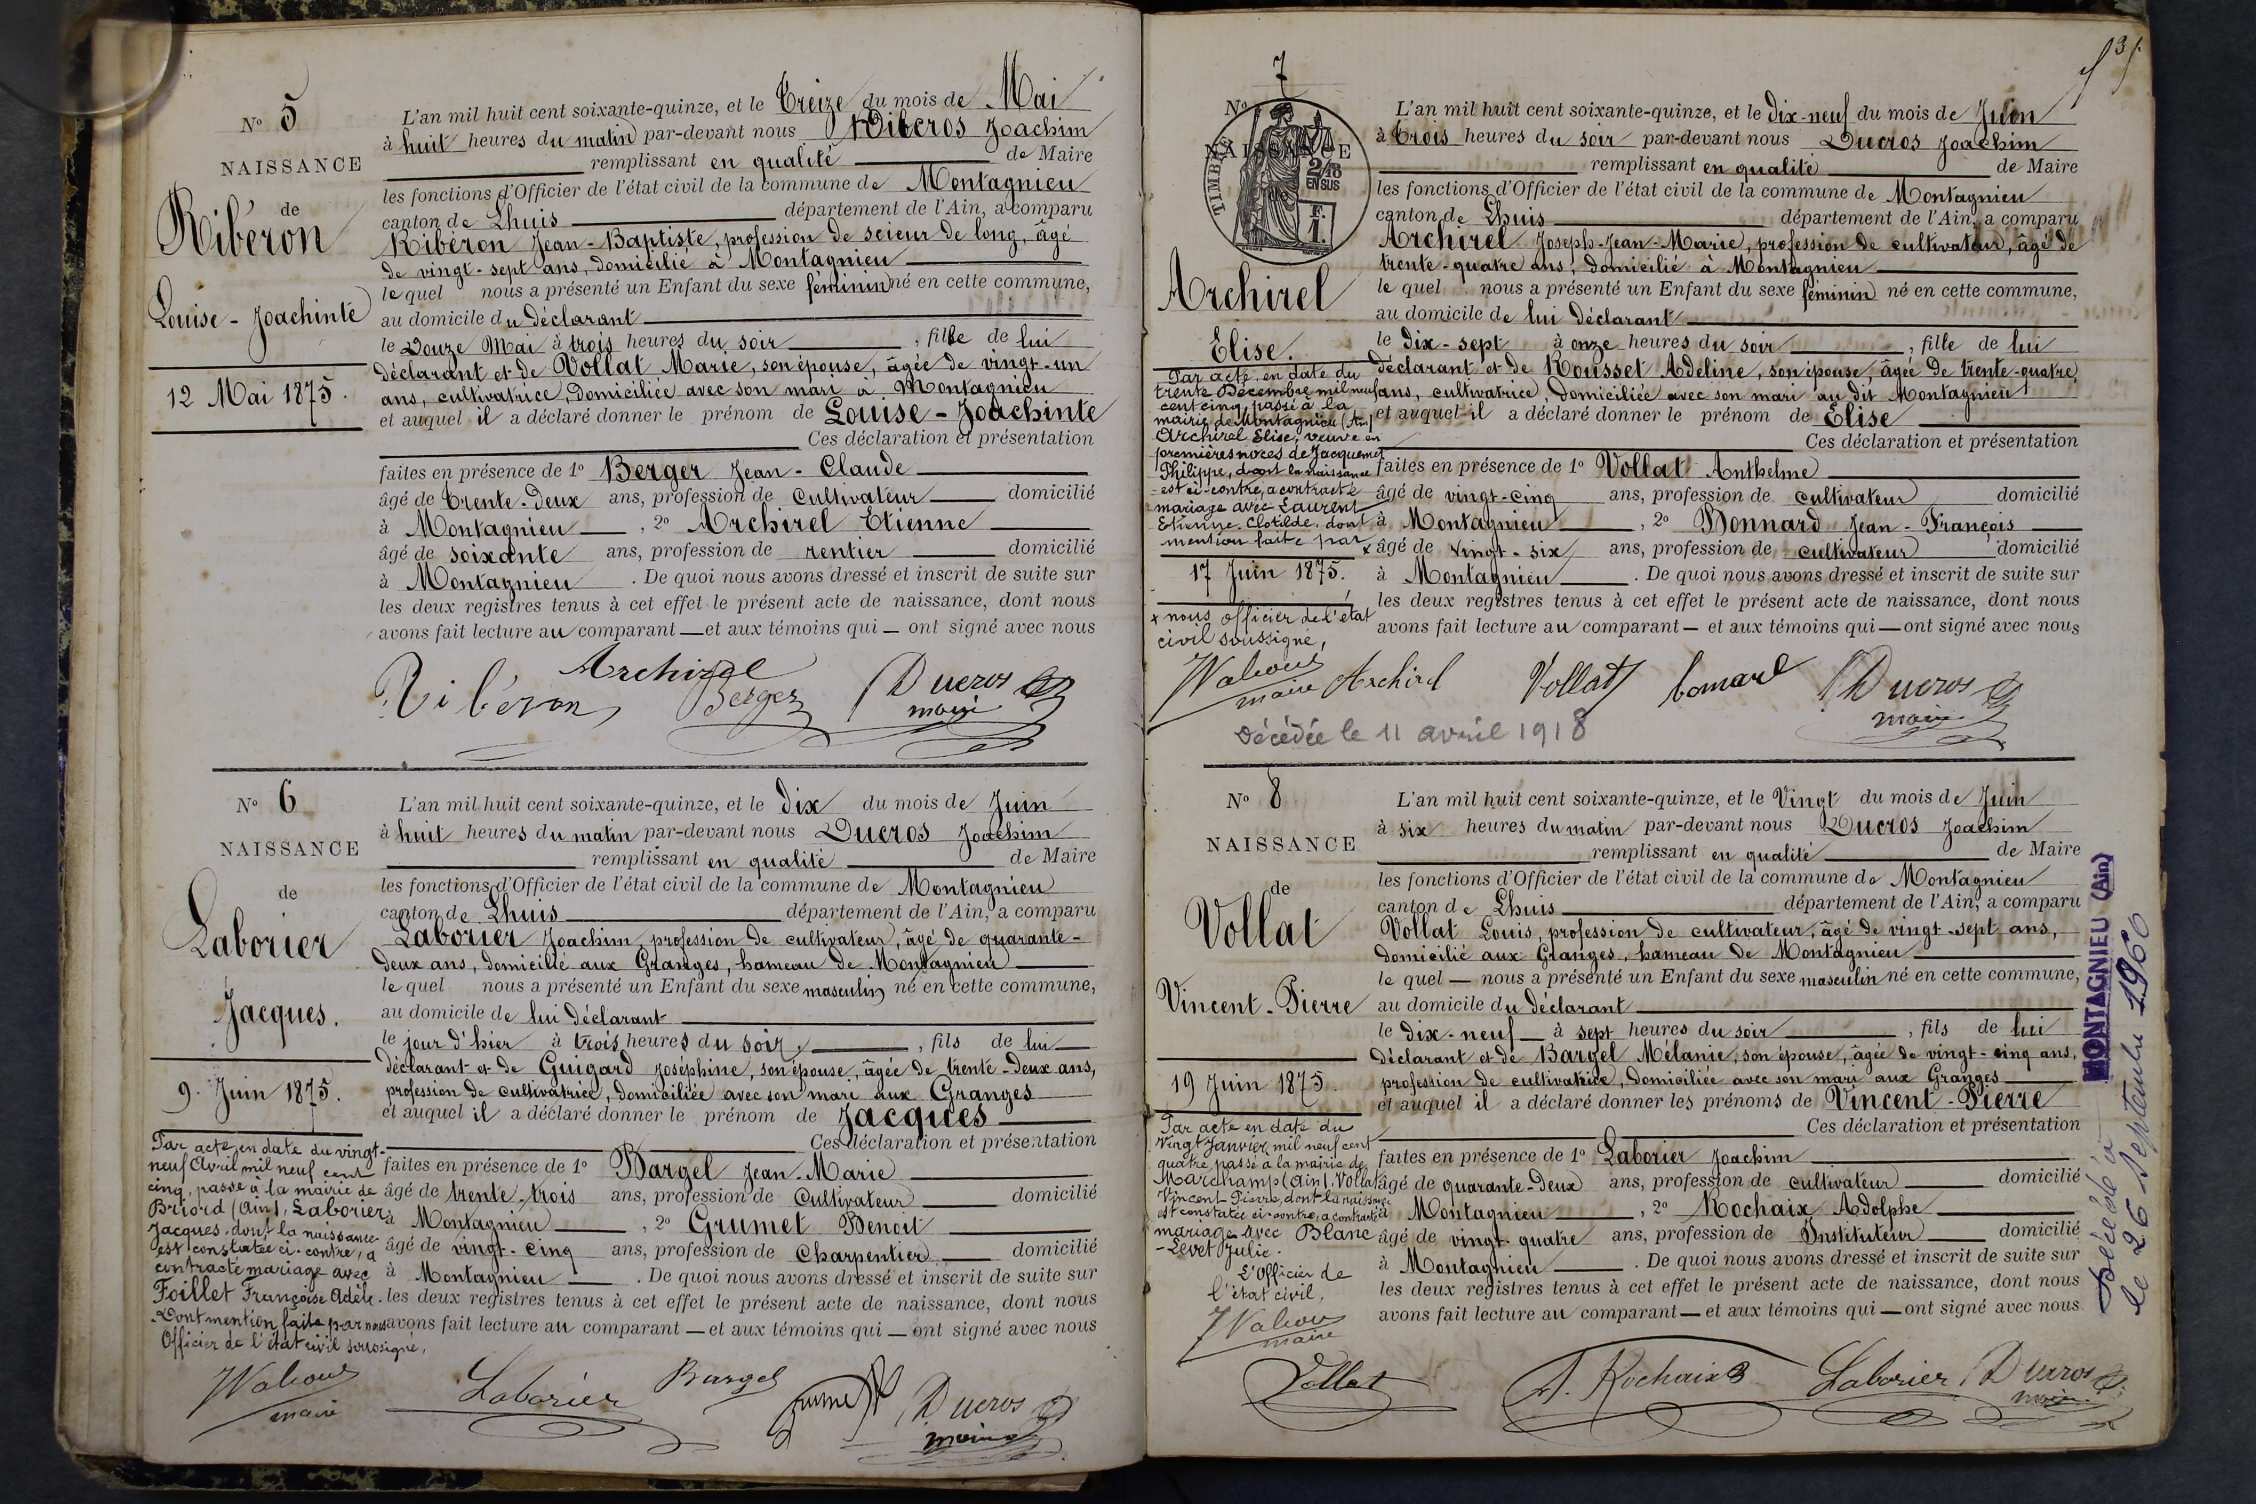 N° 5
NAISSANCE
de
Ribéron
Louise-Joachinte
12 Mai 1875.
L'an mil huit cent soixante-quinze, et le Treize du mois de Mai
à huit heures du matin par-devant nous Ducros Joachim
remplissant en qualité de Maire
les fonctions d'Officier de l'état civil de la commune de Montagnieu
canton de Lhuis département de l'Ain, a comparu
Ribéron Jean-Baptiste, profession de scieur de long, âgé
de vingt-sept ans, domicilié à Montagnieu
le quel nous a présenté un Enfant du sexe féminin né en cette commune,
au domicile du déclarant
le Douze Mai à trois heures du soir, fille de lui
déclarant et de Vollat Marie, son épouse, âgée de vingt-un
ans, cultivatrice, domiciliée avec son mari à Montagnieu
et auquel il a déclaré donner le prénom de Louise-Joachinte
Ces déclaration et présentation
faites en présence de 1° Berger Jean-Claude
âgé de trente-deux ans, profession de cultivateur domicilié
à Montagnieu, 2° Archirel Etienne
âgé de soixante ans, profession de rentier domicilié
à Montagnieu. De quoi nous avons dressé et inscrit de suite sur
les deux registres tenus à cet effet le présent acte de naissance, dont nous
avons fait lecture au comparant — et aux témoins qui — ont signé avec nous
Archirel
Ribéron Berger Ducros
maire
N° 6
NAISSANCE
de
Laborier
Jacques.
9. Juin 1875.
Par acte en date du vingt-
neuf Avril mil neuf cent
cinq, passé à la mairie de
Briord (Ain), Laborier
Jacques, dont la naissance
est constatée ci-contre, a
contracté mariage avec
Foillet Françoise Adèle.
Dont mention faite par nous
Officier de l'état civil soussigné,
maire
L'an mil huit cent soixante-quinze, et le dix du mois de Juin
à huit heures du matin par-devant nous Ducros Joachim
remplissant en qualité de Maire
les fonctions d'Officier de l'état civil de la commune de Montagnieu
canton de Lhuis département de l'Ain, a comparu
Laborier Joachim, profession de cultivateur, âgé de quarante-
deux ans, domicilié aux Granges, hameau de Montagnieu
le quel nous a présenté un Enfant du sexe masculin né en cette commune,
au domicile de lui déclarant
le jour d'hier à trois heures du soir, fils de lui
déclarant et de Guigard Joséphine, son épouse, âgée de trente-deux ans,
profession de cultivatrice, domiciliée avec son mari aux Granges
et auquel il a déclaré donner le prénom de Jacques
Ces déclaration et présentation
faites en présence de 1° Bargel Jean-Marie
âgé de trente-trois ans, profession de Cultivateur domicilié
à Montagnieu, 2° Grumet Benoit
âgé de vingt-cinq ans, profession de Charpentier domicilié
à Montagnieu. De quoi nous avons dressé et inscrit de suite sur
les deux registres tenus à cet effet le présent acte de naissance, dont nous
avons fait lecture au comparant — et aux témoins qui — ont signé avec nous
Laborier Bargel Grumet Ducros
maire
13
N° 7
NAISSANCE
de
TIMBRE
2/10
EN SUS
F.
1.
Archirel
Elise.
Par acte, en date du
trente Décembre mil neuf
cent cinq, passé à la
mairie de Montagnieu (Ain)
Archirel Elise, veuve en
premières noces de Jacquemet
Philippe, dont la naissance
est ci-contre, a contracté
mariage avec Laurent
Etienne-Clotilde, dont
mention faite par x
17 Juin 1875.
x nous officier de l'état
civil soussigné,
maire
L'an mil huit cent soixante-quinze, et le dix-neuf du mois de Juin
à trois heures du soir par-devant nous Ducros Joachim
remplissant en qualité de Maire
les fonctions d'Officier de l'état civil de la commune de Montagnieu
canton de Lhuis département de l'Ain, a comparu
Archirel Joseph-Jean-Marie, profession de cultivateur, âgé de
trente-quatre ans, domicilié à Montagnieu
le quel nous a présenté un Enfant du sexe féminin né en cette commune,
au domicile de lui déclarant
le dix-sept à onze heures du soir, fille de lui
déclarant et de Rousset Adeline, son épouse, âgée de trente-quatre
ans, cultivatrice, domiciliée avec son mari au dit Montagnieu
et auquel il a déclaré donner le prénom de Elise
Ces déclaration et présentation
faites en présence de 1° Vollat Anthelme
âgé de vingt-cinq ans, profession de cultivateur domicilié
à Montagnieu, 2° Bonnard Jean-François
âgé de vingt-six ans, profession de cultivateur domicilié
à Montagnieu. De quoi nous avons dressé et inscrit de suite sur
les deux registres tenus à cet effet le présent acte de naissance, dont nous
avons fait lecture au comparant — et aux témoins qui — ont signé avec nous
Archirel Vollat bonard Ducros
maire
Décédée le 11 avril 1918
N° 8
NAISSANCE
de
Vollat
Vincent-Pierre
19 Juin 1875.
Par acte en date du
Vingt Janvier mil neuf cent
quatre, passé à la mairie de
Marchamp (Ain), Vollat
Vincent Pierre, dont la naissance
est constatée ci-contre, a contracté
mariage avec Blanc
-Levet Julie.
L'Officier de
l'état civil,
maire
L'an mil huit cent soixante-quinze, et le Vingt du mois de Juin
à six heures du matin par-devant nous Ducros Joachim
remplissant en qualité de Maire
les fonctions d'Officier de l'état civil de la commune de Montagnieu
canton de Lhuis département de l'Ain, a comparu
Vollat Louis, profession de cultivateur, âgé de vingt-sept ans,
domicilié aux Granges, hameau de Montagnieu
le quel — nous a présenté un Enfant du sexe masculin né en cette commune,
au domicile du déclarant
le dix-neuf à sept heures du soir, fils de lui
déclarant et de Bargel Mélanie, son épouse, âgée de vingt-cinq ans,
profession de cultivatrice, domiciliée avec son mari aux Granges
et auquel il a déclaré donner les prénoms de Vincent-Pierre
Ces déclaration et présentation
faites en présence de 1° Laborier Joachim
âgé de quarante-deux ans, profession de cultivateur domicilié
à Montagnieu, 2° Rochaix Adolphe
âgé de vingt-quatre ans, profession de Instituteur domicilié
à Montagnieu. De quoi nous avons dressé et inscrit de suite sur
les deux registres tenus à cet effet le présent acte de naissance, dont nous
avons fait lecture au comparant — et aux témoins qui — ont signé avec nous
Vollat A. Rochaix Laborier Ducros
maire
Décédé à MONTAGNIEU (Ain)
le 26 Septembre 1960